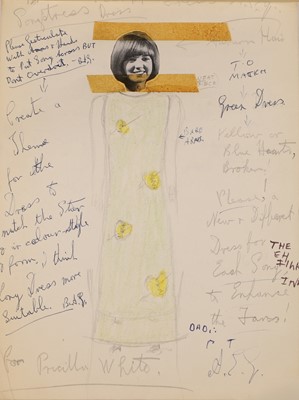 Songstress Dress
Please Gesticulate
With Arms & Hands
to Put Song Across BUT
Dont Overdo it. - B.S.E.
Create a
Theme
for the
Dress to
match the Star
in colour style
& form, I think
Long Dress more
Suitable. B.S.E.
for Priscilla White.
Hair
TO
MATCH
Green Dress
Yellow or
Blue Hearts,
Broken
Please, a
New & Different
Dress for
Each Song
to Enhance
the Faves!
BARE
ARMS.
THE
DAD.